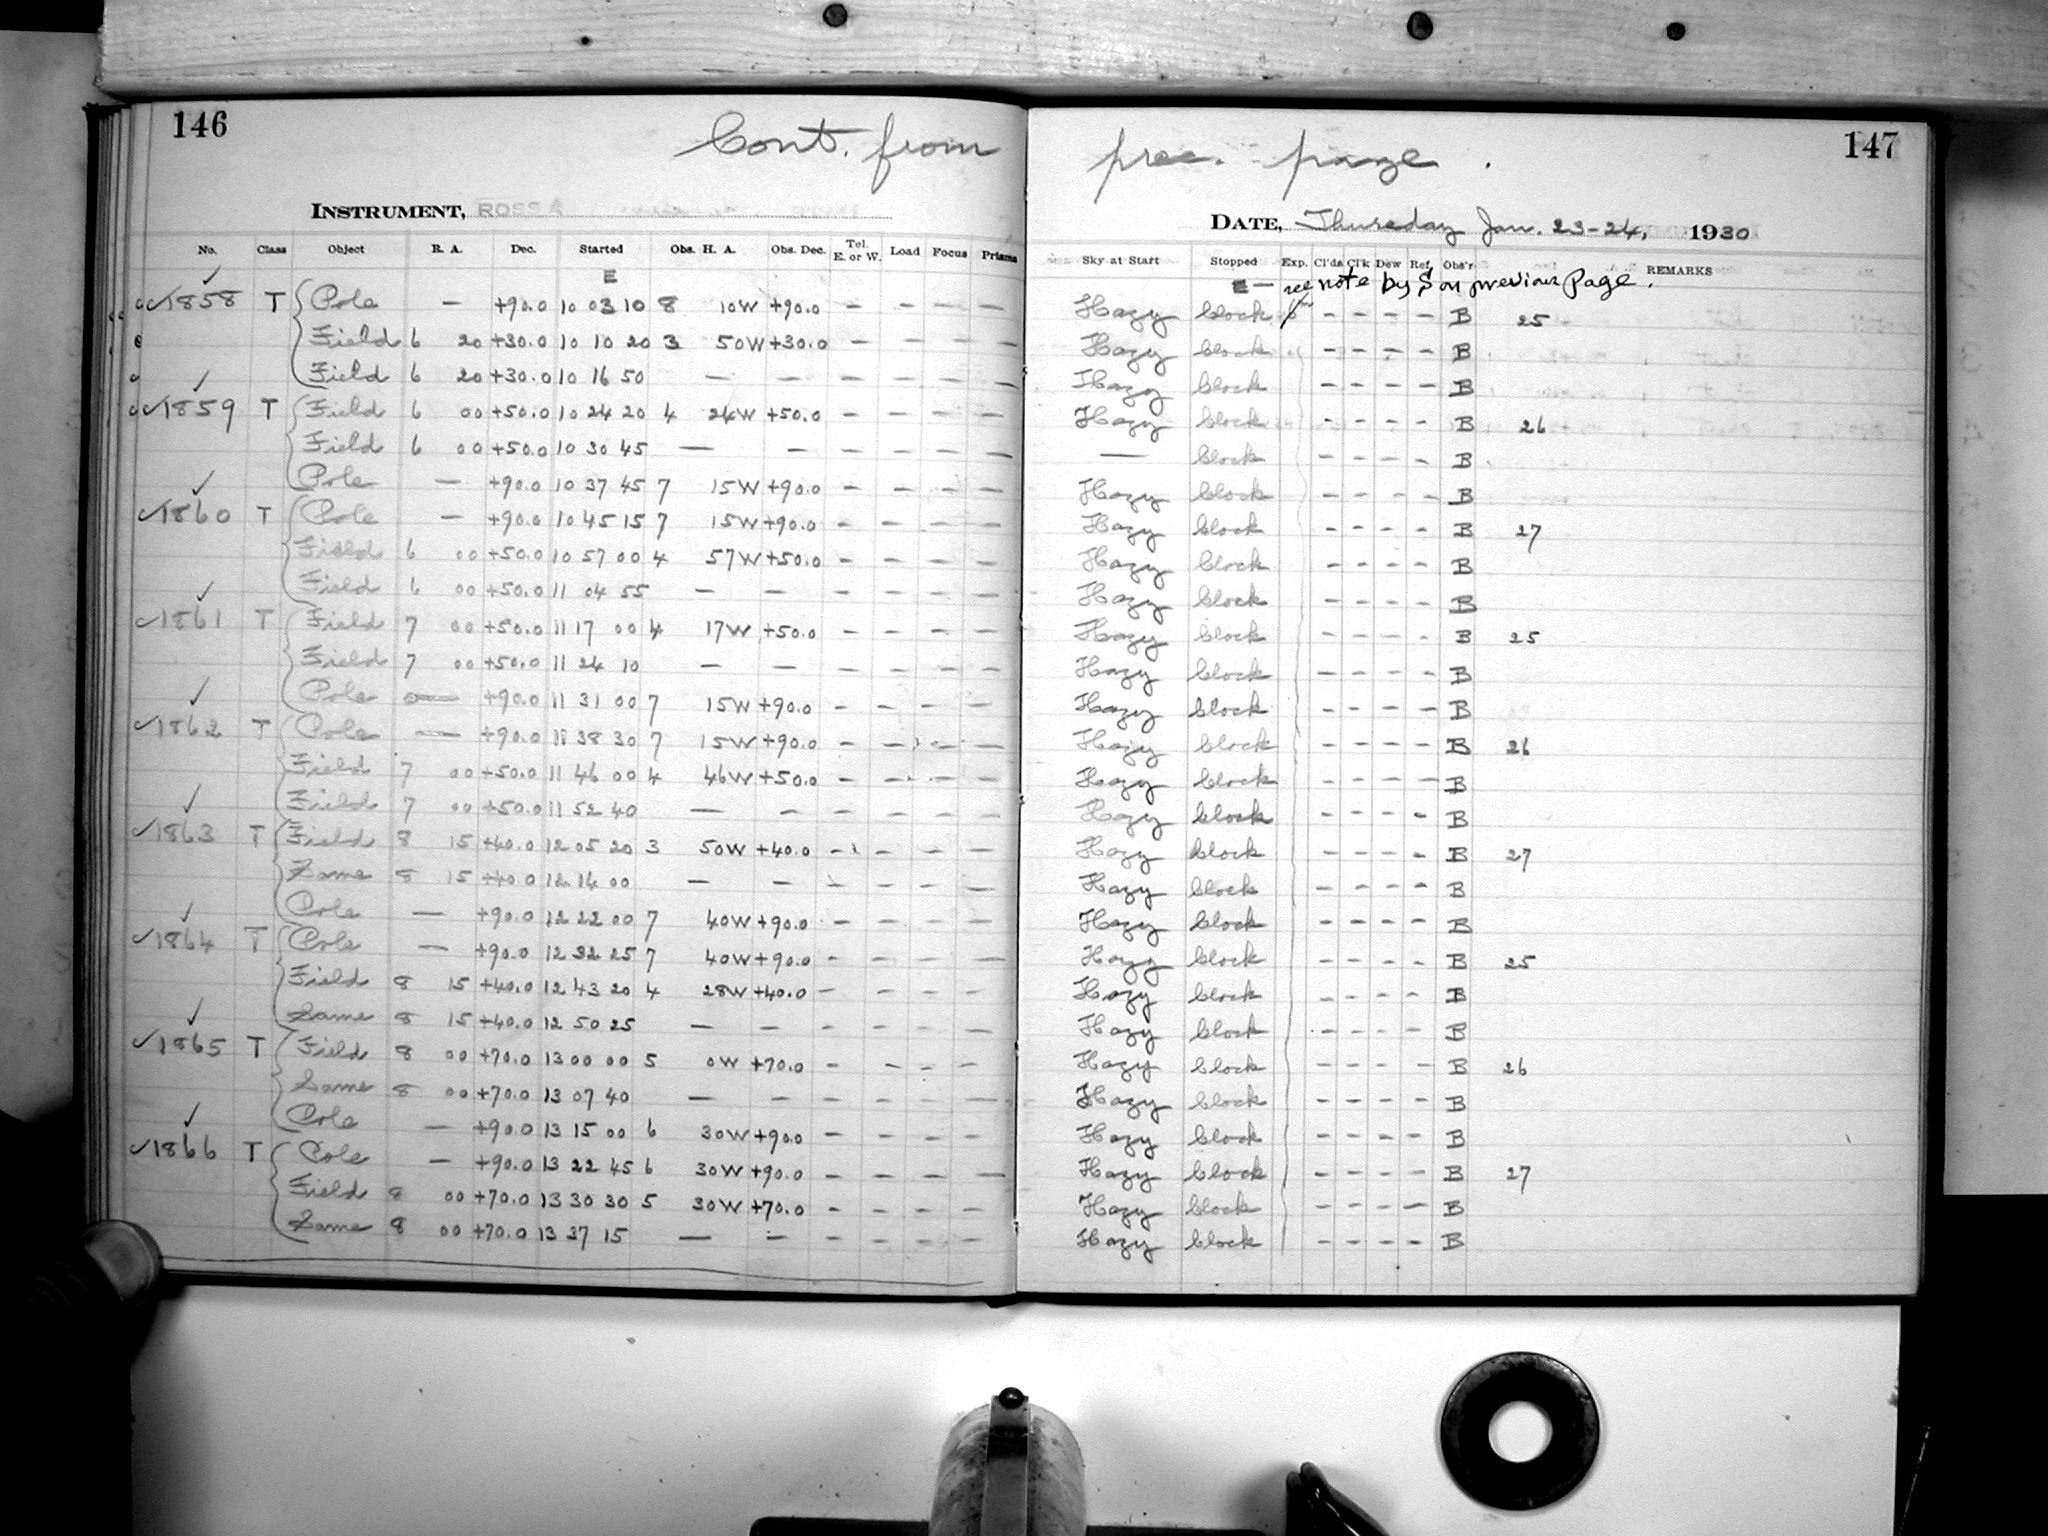 146
147
Cont. from prec. page.
INSTRUMENT, ROSS A
DATE, Thursday Jan. 23-24, 1930
No. Class Object R. A. Dec. Started Obs. H. A. Obs. Dec. Tel. E. or W. Load Focus Prisms Sky at Start Stopped Exp. Cl'ds Cl'k Dew Ref. Obs'r REMARKS
E
E — see note by S on previous Page.
✓1858 T Pole — +90.0 10 03 10 8 10W +90.0 — — — — Hazy Clock — — — — B 25
Field 6 20 +30.0 10 10 20 3 50W +30.0 — — — — Hazy Clock — — — — B
Field 6 20 +30.0 10 16 50 — — — — — — Hazy Clock — — — — B
✓1859 T Field 6 00 +50.0 10 24 20 4 24W +50.0 — — — — Hazy Clock — — — — B 26
Field 6 00 +50.0 10 30 45 — — — — — — — Clock — — — — B
Pole — +90.0 10 37 45 7 15W +90.0 — — — — Hazy Clock — — — — B
✓1860 T Pole — +90.0 10 45 15 7 15W +90.0 — — — — Hazy Clock — — — — B 27
Field 6 00 +50.0 10 57 00 4 57W +50.0 — — — — Hazy Clock — — — — B
Field 6 00 +50.0 11 04 55 — — — — — — Hazy Clock — — — — B
✓1861 T Field 7 00 +50.0 11 17 00 4 17W +50.0 — — — — Hazy Clock — — — — B 25
Field 7 00 +50.0 11 24 10 — — — — — — Hazy Clock — — — — B
Pole — +90.0 11 31 00 7 15W +90.0 — — — — Hazy Clock — — — — B
✓1862 T Pole — +90.0 11 38 30 7 15W +90.0 — — — — Hazy Clock — — — — B 26
Field 7 00 +50.0 11 46 00 4 46W +50.0 — — — — Hazy Clock — — — — B
Field 7 00 +50.0 11 52 40 — — — — — — Hazy Clock — — — — B
✓1863 T Field 8 15 +40.0 12 05 20 3 50W +40.0 — — — — Hazy Clock — — — — B 27
Same 8 15 +40.0 12 14 00 — — — — — — Hazy Clock — — — — B
Pole — +90.0 12 22 00 7 40W +90.0 — — — — Hazy Clock — — — — B
✓1864 T Pole — +90.0 12 32 25 7 40W +90.0 — — — — Hazy Clock — — — — B 25
Field 8 15 +40.0 12 43 20 4 28W +40.0 — — — — Hazy Clock — — — — B
Same 8 15 +40.0 12 50 25 — — — — — — Hazy Clock — — — — B
✓1865 T Field 8 00 +70.0 13 00 00 5 0W +70.0 — — — — Hazy Clock — — — — B 26
Same 8 00 +70.0 13 07 40 — — — — — — Hazy Clock — — — — B
Pole — +90.0 13 15 00 6 30W +90.0 — — — — Hazy Clock — — — — B
✓1866 T Pole — +90.0 13 22 45 6 30W +90.0 — — — — Hazy Clock — — — — B 27
Field 8 00 +70.0 13 30 30 5 30W +70.0 — — — — Hazy Clock — — — — B
Same 8 00 +70.0 13 37 15 — — — — — — Hazy Clock — — — — B